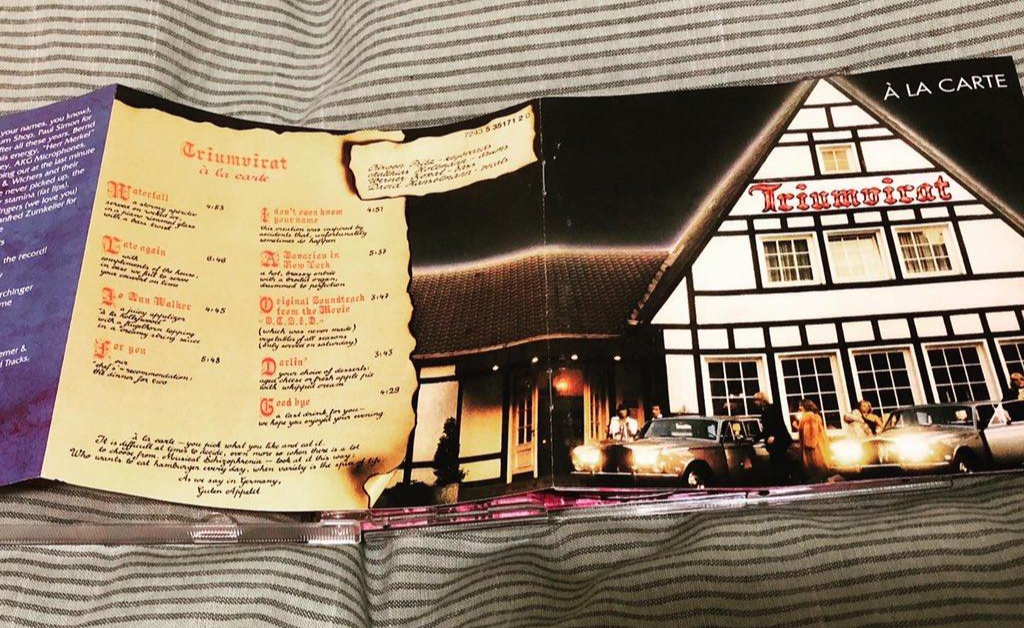 your names, you know!,
um Shop, Paul Simon for
fter all these years. Bernd
is energy, "Herr Merkel"
ey, AKG Microphones,
ping out at the last minute
& Wichers and their
never picked up, the
stamina (fat lips),
ingers (we love you)
anfred Zumkeller for
the record!
rchinger
me
emer &
d Tracks,
Triumvirat
à la carte
Waterfall 4:53
a stormy aperitiv
served on rocks in
a piano-rimmed glass
with a bass twist
Late again 8:46
with
compliments of the house,
in case we fail to serve
your second on time
Jo Ann Walker 4:45
a juicy appetizer
"à la Hollywood"
with a Flugelhorn topping
in a creamy string sauce
For you 5:48
our
chef's recommendation:
the dinner for two
I don't even know 4:51
your name
this creation was inspired by
accidents that, unfortunately
sometimes do happen
A Bavarian in 5:37
New York
a hot, brassy entrée
with a broiled organ,
drummed to perfection
Original Soundtrack 3:47
from the Movie
"O.C.S.I.D."
(which was never made)
vegetables of all seasons
(only served on saturday)
Darlin' 3:43
your choice of desserts:
aged cheese or fresh apple pie
with whipped cream
Good bye 4:29
a last drink for you—
we hope you enjoyed your evening
à la carte – you pick what you like and eat it.
It is difficult at times to decide, even more so when there is a lot
to choose from. Musical Schizophrenia – look at it this way:
Who wants to eat hamburger every day, when variety is the spice of life.
As we say in Germany,
Guten Appetit
7243 5 35171 2 0
Jürgen Fritz – keyboards
Matthias Holtmann – drums
Werner Kopal – bass, vocals
David Hanselmann – vocals
À LA CARTE
Triumvirat